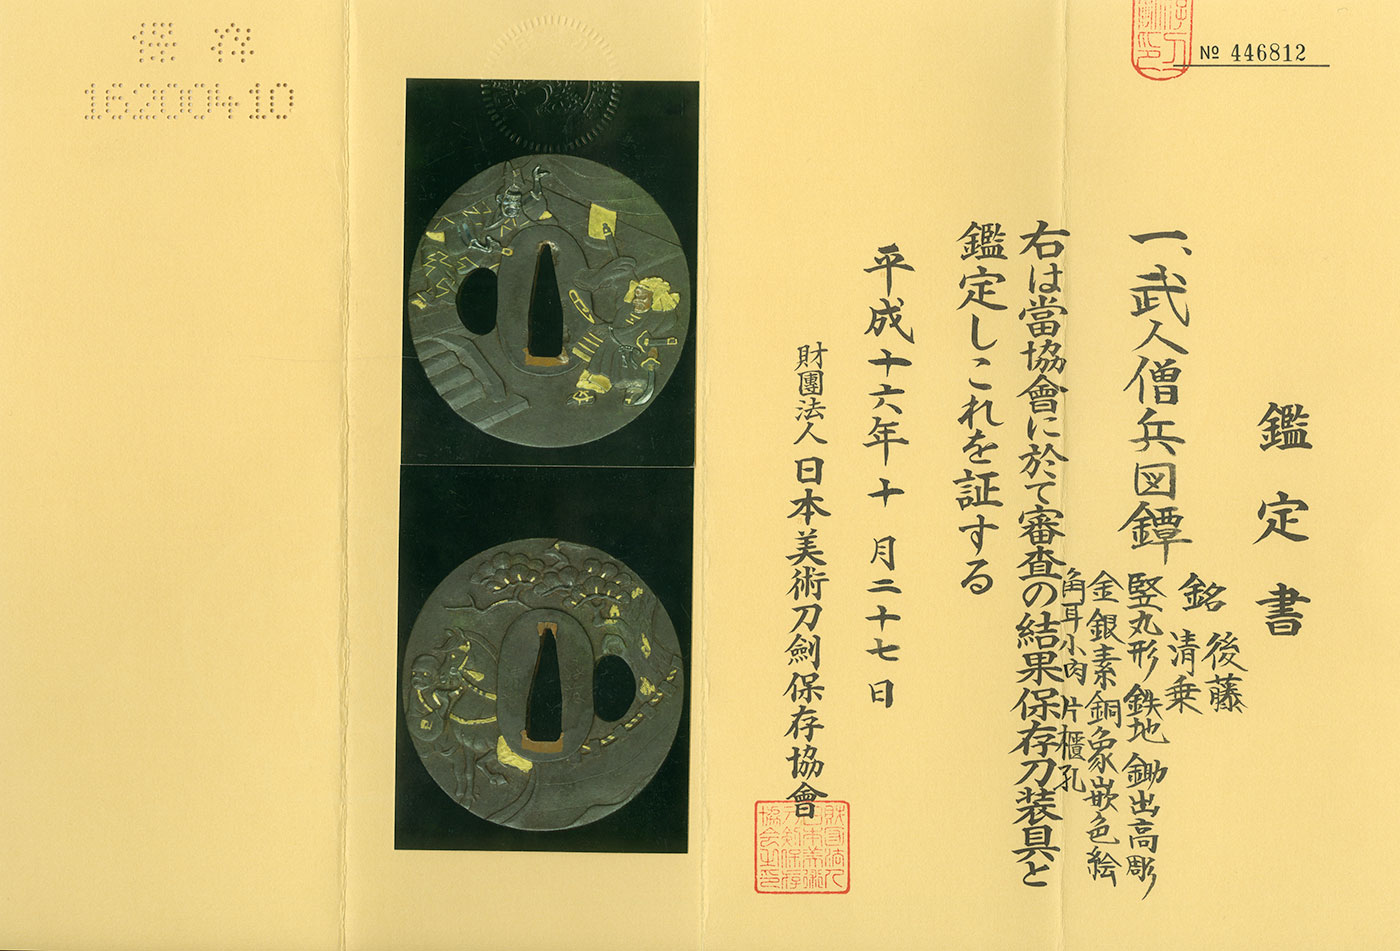 № 446812
鑑定書
一、武人僧兵図鐔
銘 後藤
清乗
竪丸形 鉄地 鋤出高彫
金銀素銅象嵌色絵
角耳小肉 片櫃孔
右は當協會に於て審査の結果保存刀装具と
鑑定しこれを証する
平成十六年十月二十七日
財團法人 日本美術刀劍保存協會
保存
16200410